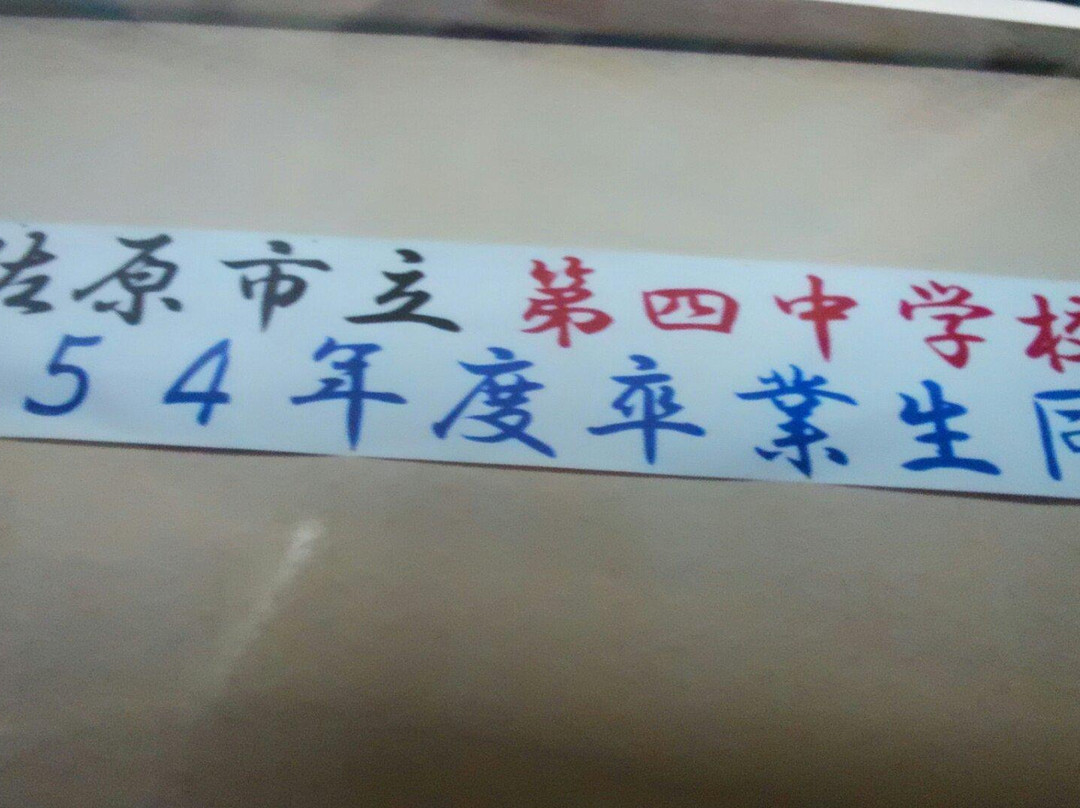 佐原市立第四中学校
54年度卒業生同